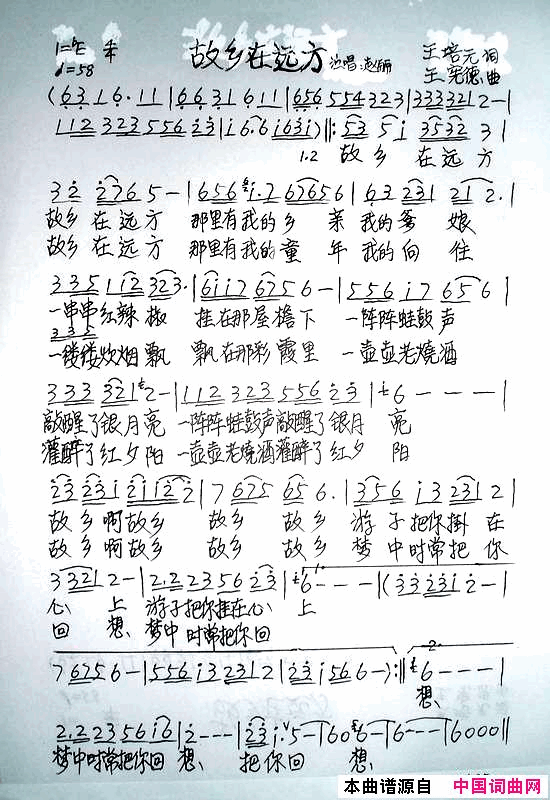 1=♭E 故乡在远方 演唱:赵俪 王培元词
♩=58 王宪德曲
(63 16·11|66 31 611|656 554 323|333 321 2-|
112 323 556 23|i 6·6 i63i)||:53 5i 3532 31|
1.2 故乡 在远方
32 2765-|656 i·7 67656|63 231 21 2·|
故乡 在远方 那里有我的乡 亲 我的爹 娘
故乡 在远方 那里有我的童 年 我的向 往
335 1i2 323·|6ii7 6756-|556 i7 656|
一串串红辣椒 挂在那屋檐下 一阵阵蛙鼓声
335
一缕缕炊烟飘 飘在那彩霞里 一壶壶老烧酒
333 321 2-|112 323 556 23|6---|
敲醒了银月亮 一阵阵蛙鼓声敲醒了银月 亮
灌醉了红夕阳 一壶壶老烧酒灌醉了红夕 阳
23 23i 2i122|7 675 656·|356 i3 231 2|
故乡啊故乡 故乡 故乡 游子把你掛在
故乡啊故乡 故乡 故乡 梦中时常把你
3 321 2-|2·2 2356 23|6---|(33 23i 2-|
心 上 游子把你挂在心 上
回 想 梦中时常把你回
7 6756-|556 i3 231 2|23 i566-):||6---|
想
2·2 2356 i6|2---|23 i·5-|606-|6---|6000||
梦中时常把你回 想 把你回 想
本曲谱源自 中国词曲网